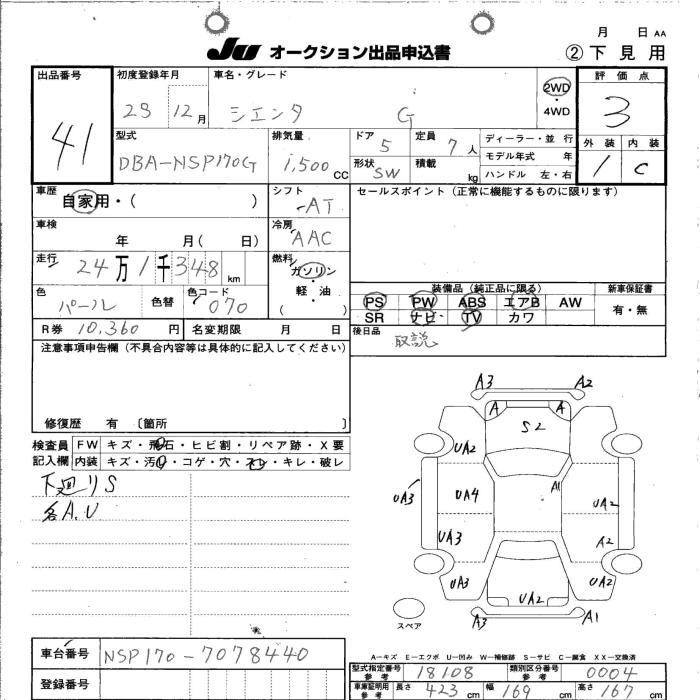 月 日 AA
JU オークション出品申込書 ②下見用
出品番号 初度登録年月 車名・グレード 評価点
41 28 12月 シエンタ G 2WD ・ 4WD 3
型式 排気量 ドア 定員 ディーラー・並行 外装 内装
DBA-NSP170G 1,500 CC 5 7人 モデル年式 年 1 C
形状 SW 積載 kg ハンドル 左・右
車歴 自家用・( ) シフト AT セールスポイント(正常に機能するものに限ります)
車検 年 月( 日) 冷房 AAC
走行 24万1千348 km 燃料 ガソリン・軽油 ( )
色 パール 色替 色コード 070
装備品(純正品に限る) 新車保証書
PS PW ABS エアB AW 有・無
SR ナビ・ TV カワ
R券 10,360円 名変期限 月 日 後日品 取説
注意事項申告欄(不具合内容等は具体的に記入してください)
修復歴 有 〔箇所 〕
検査員 FW キズ・飛石・ヒビ割・リペア跡・X要
記入欄 内装 キズ・汚・コゲ・穴・・キレ・破レ
下廻りS
各A.U
A3 A2
A A
S2
UA2
A1
UA3 UA4 UA2
UA3 A2
UA3 UA2 UA2
A3 A1
スペア
A―キズ E―エクボ U―凹み W―補修跡 S―サビ C―腐食 XX―交換済
車台番号 NSP170-7078440
型式指定番号 参考 18108 類別区分番号 参考 0004
登録番号
車庫証明用 参考 長さ 423 cm 幅 169 cm 高さ 167 cm